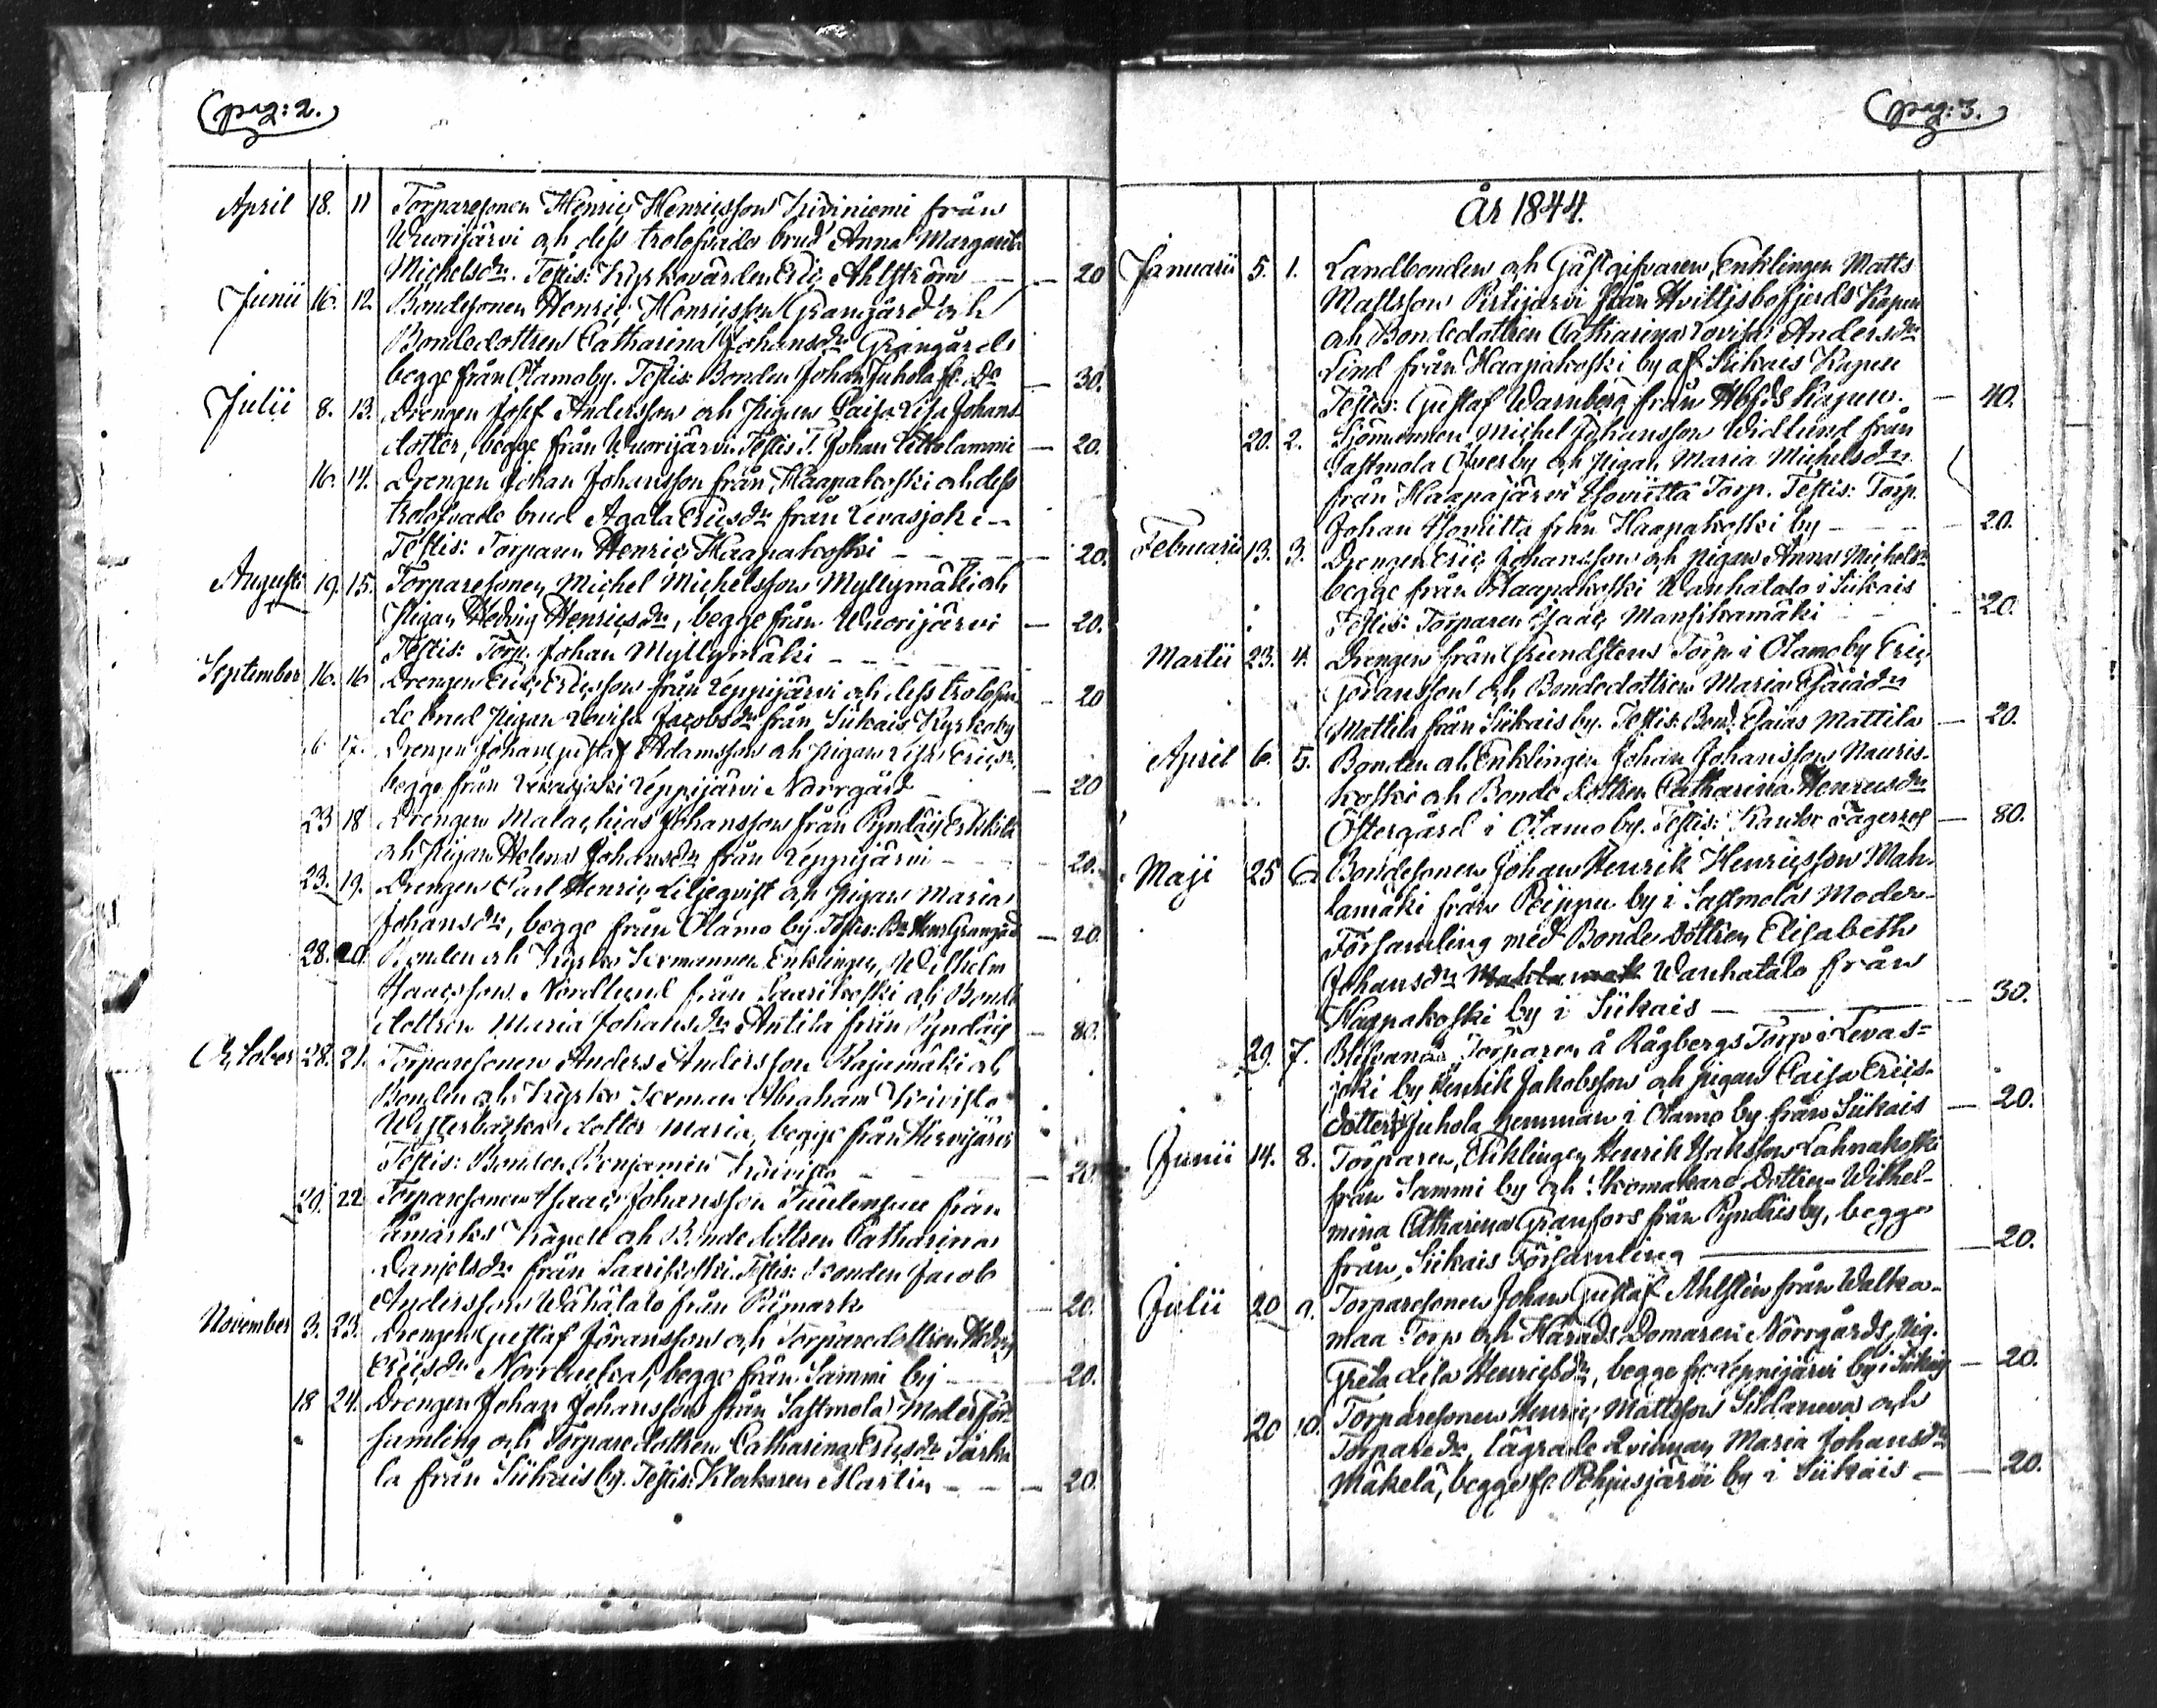 (pag: 2.)
April 18. 11 Torparesonen Henric Henricsson Kiviniemi från
Wuorijärvi och dess trolofvade brud Anna Margareta
Michelsdr. Testis: Kyrkovärden Eric Ahlström — 20
Junii 16. 12. Bondesonen Henric Henricsson Grangård och
Bondedottren Catharina Johansdr Grangård
begge från Otamo by. Testis Bonden Johan Juhola fr. Do — 30.
Julii 8. 13. Drengen Josef Andersson och Pigan Caisa Lisa Johans
dotter, begge från Wuorijärvi. Testis T. Johan Lettolammi — 20.
16. 14. Drengen Johan Johansson från Haapakoski och dess
trolofvade brud Agata Ericsdr från Levasjoki —
Testis: Torparen Henric Haapakoski — — — 20.
Augusti 19. 15. Torparesonen Michel Michelsson Myllymäki och
Pigan Hedvig Henricsdr, begge från Wuorijärvi — 20.
Testis: Torp. Johan Myllymäki — — —
September 16. 16 Drengen Eric Ericsson från Leppijärvi och dess trolofva
de brud Pigan Lovisa Jacobsdr från Siikais Kyrkoby — 20
6 17. Drengen Johan Gustaf Adamsson och Pigan Lisa Ericsdr
begge från Levasjoki Leppijärvi Norrgård — 20
23 18 Drengen Malachias Johansson från Pyndäis Erkkilä
och Pigan Helena Johansdr från Leppijärvi — 20.
23. 19. Drengen Carl Henric Liljeqvist och Pigan Maria
Johansdr, begge från Otamo by. Testis: Bn Henr Grangård — 20.
28. 20. Bonden och Kyrko Sexmannen Enklingen, Wilhelm
Isaacsson Nordlund från Saarikoski och Bonde
dottren Maria Johansdr Antila från Pyndäis — 80.
October 28. 21. Torparesonen Anders Andersson Kajamäki och
Bonden och Kyrko Sexman Abraham Koivisto
Westerbacka dotter Maria, begge från Hirvijärvi
Testis: Bonden Benjamin Koivisto — 20.
29. 22 Torparesonen Isaac Johansson från
Låmarks Kapell och Bondedottren Catharina
Danielsdr från Saarikoski. Testis: Bonden Jacob
Andersson Wähätalo från Rimark — 20.
November 3. 23. Drengen Gustaf Jöransson och Torparedottren Hedvig
Ericsdr, begge från Sammi by — 20.
18 24. Drengen Johan Johansson från Sastmola Moderför-
samling och Torparedottren Catharina Ericsdr Särki
la från Siikais by. Testis: Klockaren Martin — — — 20.
(pag: 3.)
År 1844.
Januarii 5. 1. Landbonden och Gästgifvaren, Enklingen Matts
Mattsson Pirtijärvi från Hvittisbofjerds Kapell
och Bondedottren Catharina Lovisa Andersdr
Lind från Haapakoski by af Siikais Kapell
Testis: Gustaf Warnberg från Hbfjds Kapell. — 40.
20. 2. Sjömannen Michel Johansson Widlund från
Sastmola Öfverby och Pigan Maria Michelsdr
från Haapajärvi Torp. Testis: Torp.
Johan från Haapakoski by — 20.
Februarii 13. 3. Drengen Eric Johansson och Pigan Anna Michelsdr
begge från Haapakoski Wanhatalo i Siikais
Testis: Torparen Isaac Mansikamäki — 20.
Martii 23. 4. Drengen från Grundstens Torp i Otamo by Eric
Göransson och Bondedottren Maria Esaiædr
Mattila från Siikais by. Testis: Bond. Esaias Mattila — 20.
April 6. 5. Bonden och Enklingen Johan Johansson Nauris-
koski och Bonde dottren Catharina Henricsdr
Östergård i Otamo by. Testis: Kantor Lagerroos — 80.
Maji 25 6. Bondesonen Johan Henrik Henricsson Mah-
lamäki från Peippu by i Sastmola Moder-
Församling med Bonde Dottren Elisabeth
Johansdr Wanhatalo från
Haapakoski by i Siikais — 30.
29. 7. Blifvande Torparen å Rågbergs Torp i Levas-
joki by Henrik Jakobsson och Pigan Caisa Erics-
dotter Juhola hemman i Otamo by från Siikais — 20.
Junii 14. 8. Torparen, Enklingen Henrik Isaksson Lahnakoski
från Sammi by och Skomakare Dottren Wilhel-
mina Catharina Granfors från Pyndäis by, begge
från Siikais Församling — 20.
Julii 20 9. Torparesonen Johan Gustaf Ahlsten från Walka-
maa Torp och Härads Domaren Norrgårds Pig.
Greta Lisa Henricsdr, begge fr. Leppijärvi by i Siikais — 20.
20 10. Torparesonen Henric Mattsson Sildaneva och
Torparedr, lägrade Qvinnan Maria Johansdr
Mäkelä, begge fr. Pohjusjärvi by i Siikais — 20.